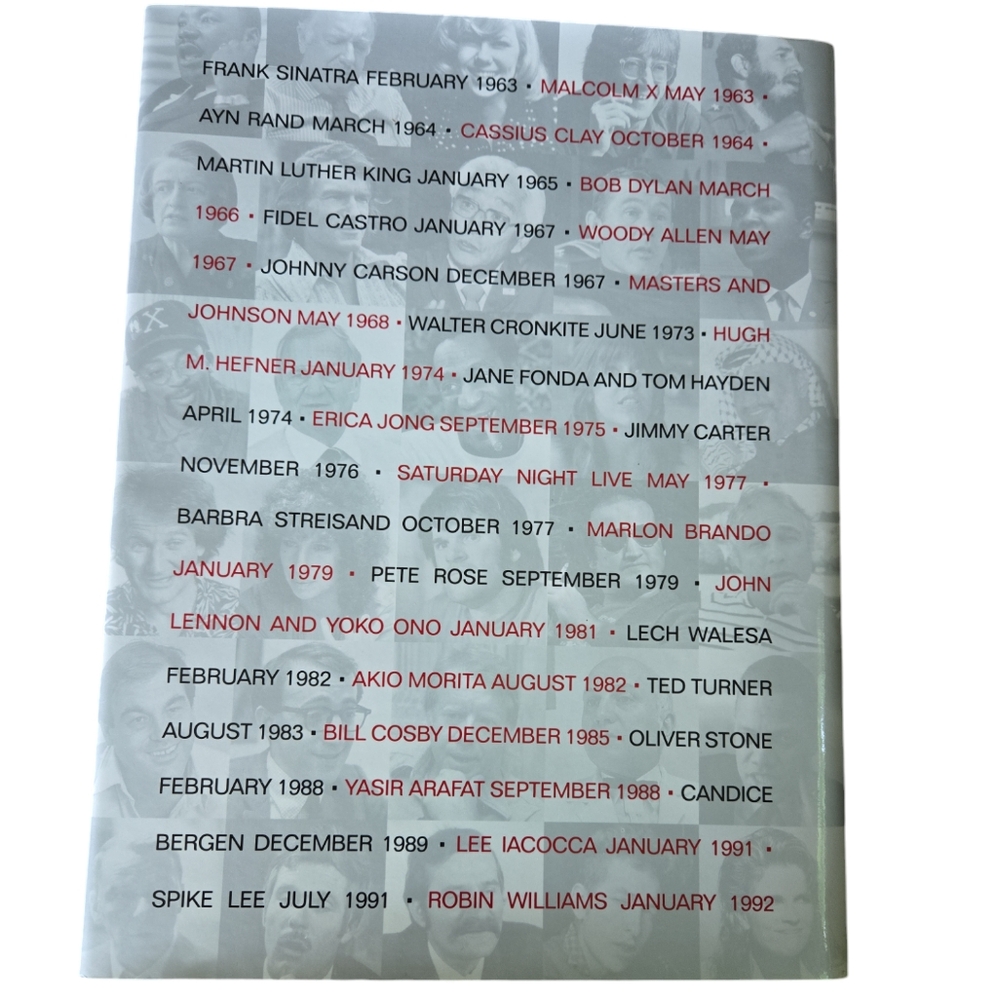 FRANK SINATRA FEBRUARY 1963 · MALCOLM X MAY 1963 ·
AYN RAND MARCH 1964 · CASSIUS CLAY OCTOBER 1964 ·
MARTIN LUTHER KING JANUARY 1965 · BOB DYLAN MARCH
1966 · FIDEL CASTRO JANUARY 1967 · WOODY ALLEN MAY
1967 · JOHNNY CARSON DECEMBER 1967 · MASTERS AND
JOHNSON MAY 1968 · WALTER CRONKITE JUNE 1973 · HUGH
M. HEFNER JANUARY 1974 · JANE FONDA AND TOM HAYDEN
APRIL 1974 · ERICA JONG SEPTEMBER 1975 · JIMMY CARTER
NOVEMBER 1976 · SATURDAY NIGHT LIVE MAY 1977 ·
BARBRA STREISAND OCTOBER 1977 · MARLON BRANDO
JANUARY 1979 · PETE ROSE SEPTEMBER 1979 · JOHN
LENNON AND YOKO ONO JANUARY 1981 · LECH WALESA
FEBRUARY 1982 · AKIO MORITA AUGUST 1982 · TED TURNER
AUGUST 1983 · BILL COSBY DECEMBER 1985 · OLIVER STONE
FEBRUARY 1988 · YASIR ARAFAT SEPTEMBER 1988 · CANDICE
BERGEN DECEMBER 1989 · LEE IACOCCA JANUARY 1991 ·
SPIKE LEE JULY 1991 · ROBIN WILLIAMS JANUARY 1992
X